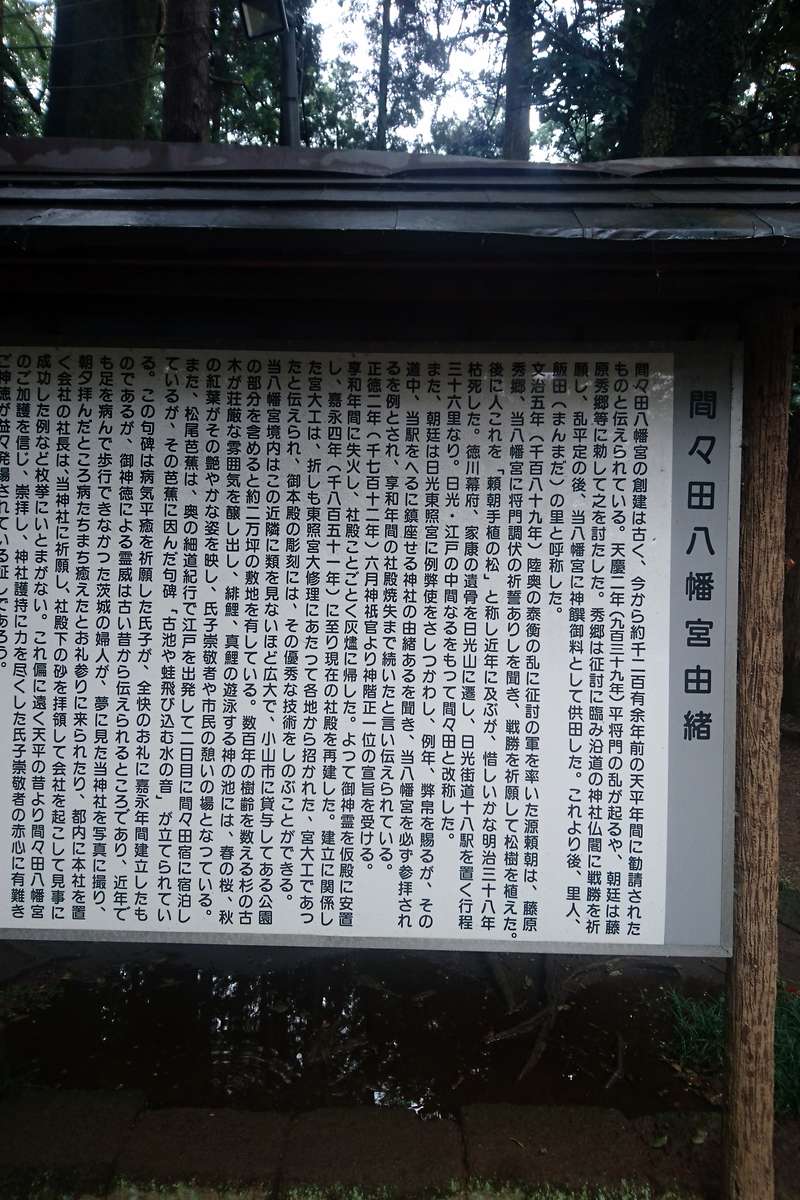 間々田八幡宮由緒
間々田八幡宮の創建は古く、今から約千二百有余年前の天平年間に勧請された
ものと伝えられている。天慶二年（九百三十九年）平将門の乱が起るや、朝廷は藤
原秀郷等に勅して之を討たした。秀郷は征討に臨み沿道の神社仏閣に戦勝を祈
願し、乱平定の後、当八幡宮に神饌御料として供田した。これより後、里人、
飯田（まんまだ）の里と呼称した。
文治五年（千百八十九年）陸奥の泰衡の乱に征討の軍を率いた源頼朝は、藤原
秀郷、当八幡宮に将門調伏の祈誓ありしを聞き、戦勝を祈願して松樹を植えた。
後に人これを「頼朝手植の松」と称し近年に及ぶが、惜しいかな明治三十八年
枯死した。徳川幕府、家康の遺骨を日光山に遷し、日光街道十八駅を置く行程
三十六里なり。日光・江戸の中間なるをもつて間々田と改称した。
また、朝廷は日光東照宮に例弊使をさしつかわし、例年、弊帛を賜るが、その
道中、当駅をへるに鎮座せる神社の由緒あるを聞き、当八幡宮を必ず参拝され
るを例とされ、享和年間の社殿焼失まで続いたと言い伝えられている。
正徳二年（千七百十二年）六月神祇官より神階正一位の宣旨を受ける。
享和年間に失火し、社殿ことごとく灰燼に帰した。よつて御神霊を仮殿に安置
し、嘉永四年（千八百五十一年）に至り現在の社殿を再建した。建立に関係し
た宮大工は、折しも東照宮大修理にあたつて各地から招かれた、宮大工であつ
たと伝えられ、御本殿の彫刻には、その優秀な技術をしのぶことができる。
当八幡宮境内はこの近隣に類を見ないほど広大で、小山市に貸与してある公園
の部分を含めると約二万坪の敷地を有している。数百年の樹齢を数える杉の古
木が荘厳な雰囲気を醸し出し、緋鯉、真鯉の遊泳する神の池には、春の桜、秋
の紅葉がその艶やかな姿を映し、氏子崇敬者や市民の憩いの場となつている。
また、松尾芭蕉は、奥の細道紀行で江戸を出発して二日目に間々田宿に宿泊し
ているが、その芭蕉に因んだ句碑「古池や蛙飛び込む水の音」が立てられてい
る。この句碑は病気平癒を祈願した氏子が、全快のお礼に嘉永年間建立したも
のであるが、御神徳による霊威は古い昔から伝えられるところであり、近年で
も足を病んで歩行できなかった茨城の婦人が、夢に見た当神社を写真に撮り、
朝夕拝んだところ病たちまち癒えたとお礼参りに来られたり、都内に本社を置
く会社の社長は、当神社に祈願し、社殿下の砂を拝領して会社を起こして見事に
成功した例など枚挙にいとまがない。これ偏に遠く天平の昔より間々田八幡宮
のご加護を信じ、崇拝し、神社護持に力を尽くした氏子崇敬者の赤心に有難き
ご神徳が益々発揚されている証しであろう。